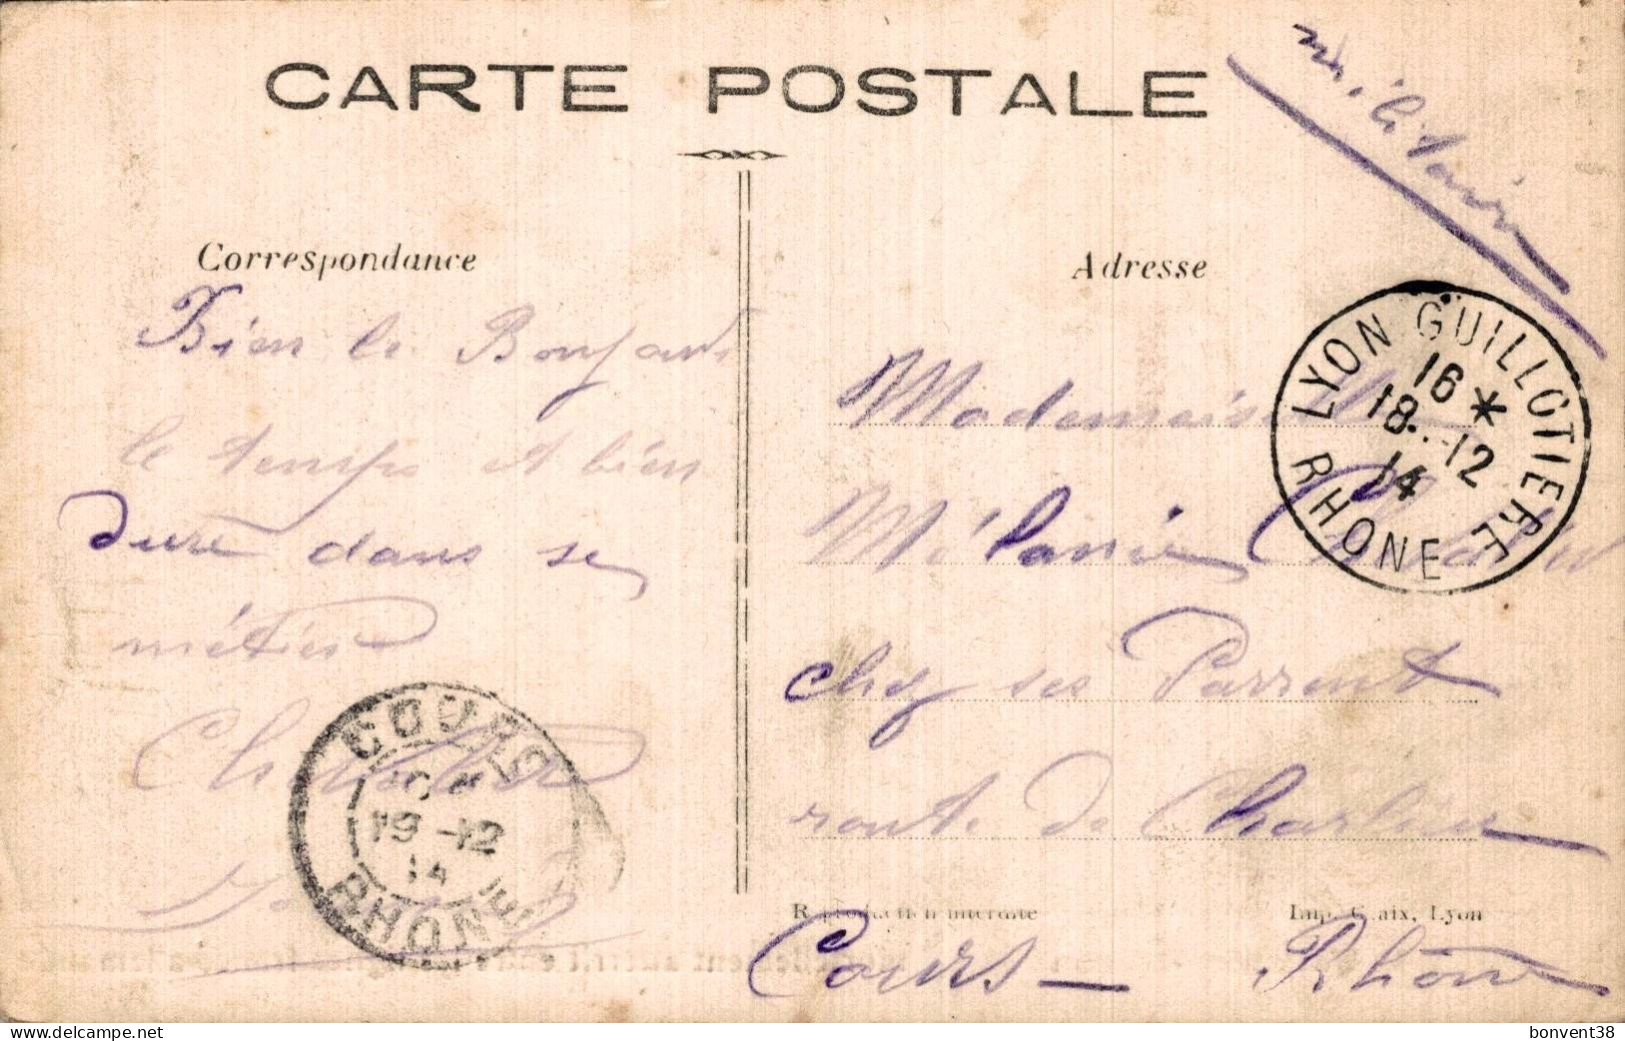 CARTE POSTALE
militaire
Correspondance
Bien le Bonjour
le temps et bien
dure dans se
métier
Adresse
Mademoiselle
Mélanie
chez ses Parrent
route de Charlieu
Cours — Rhône
LYON GUILLOTIERE
16 *
18 -12
14
RHONE
COURS
19 -12
14
RHONE
Reproduction interdite
Imp. Lyon
www.delcampe.net
bonvent38